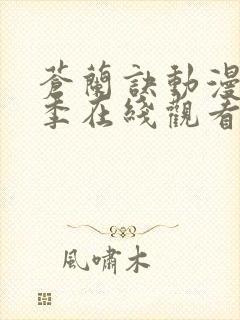 蒼蘭訣動漫
季在綫觀看
風嘯木